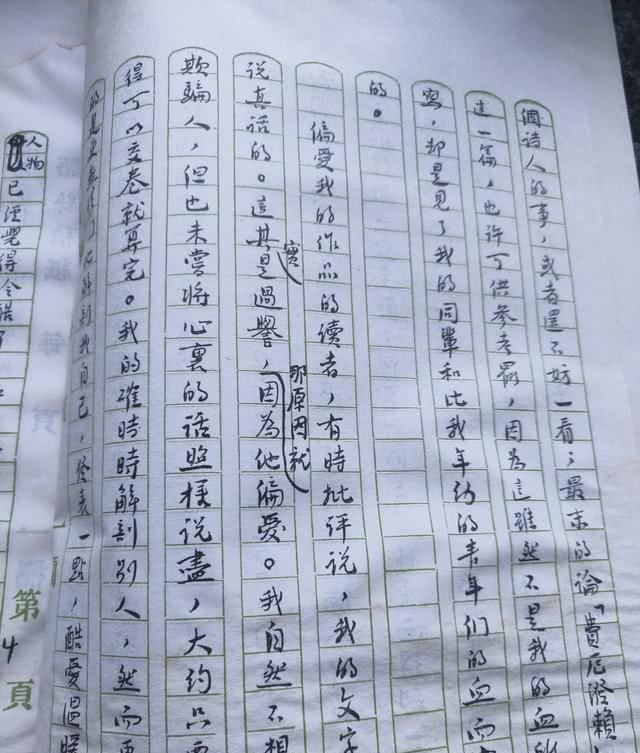 個詩人的事，或者還不妨一看；最末的論「費厄潑賴
這一篇，也許可供參考罷，因為這雖然不是我的血所
寫，却是見了我的同輩和比我年幼的青年們的血而
的。
偏愛我的作品的讀者，有時批評說，我的文字
說真話的。這其實是過譽，那原因就因為他偏愛。我自然不想
欺騙人，但也未嘗將心裏的話照樣說盡，大約只要
得可以交卷就算完。我的確時時解剖別人，然而更
的是更無情面地解剖我自己，發表一點，酷愛溫暖
人物已經覺得冷酷了
第4頁